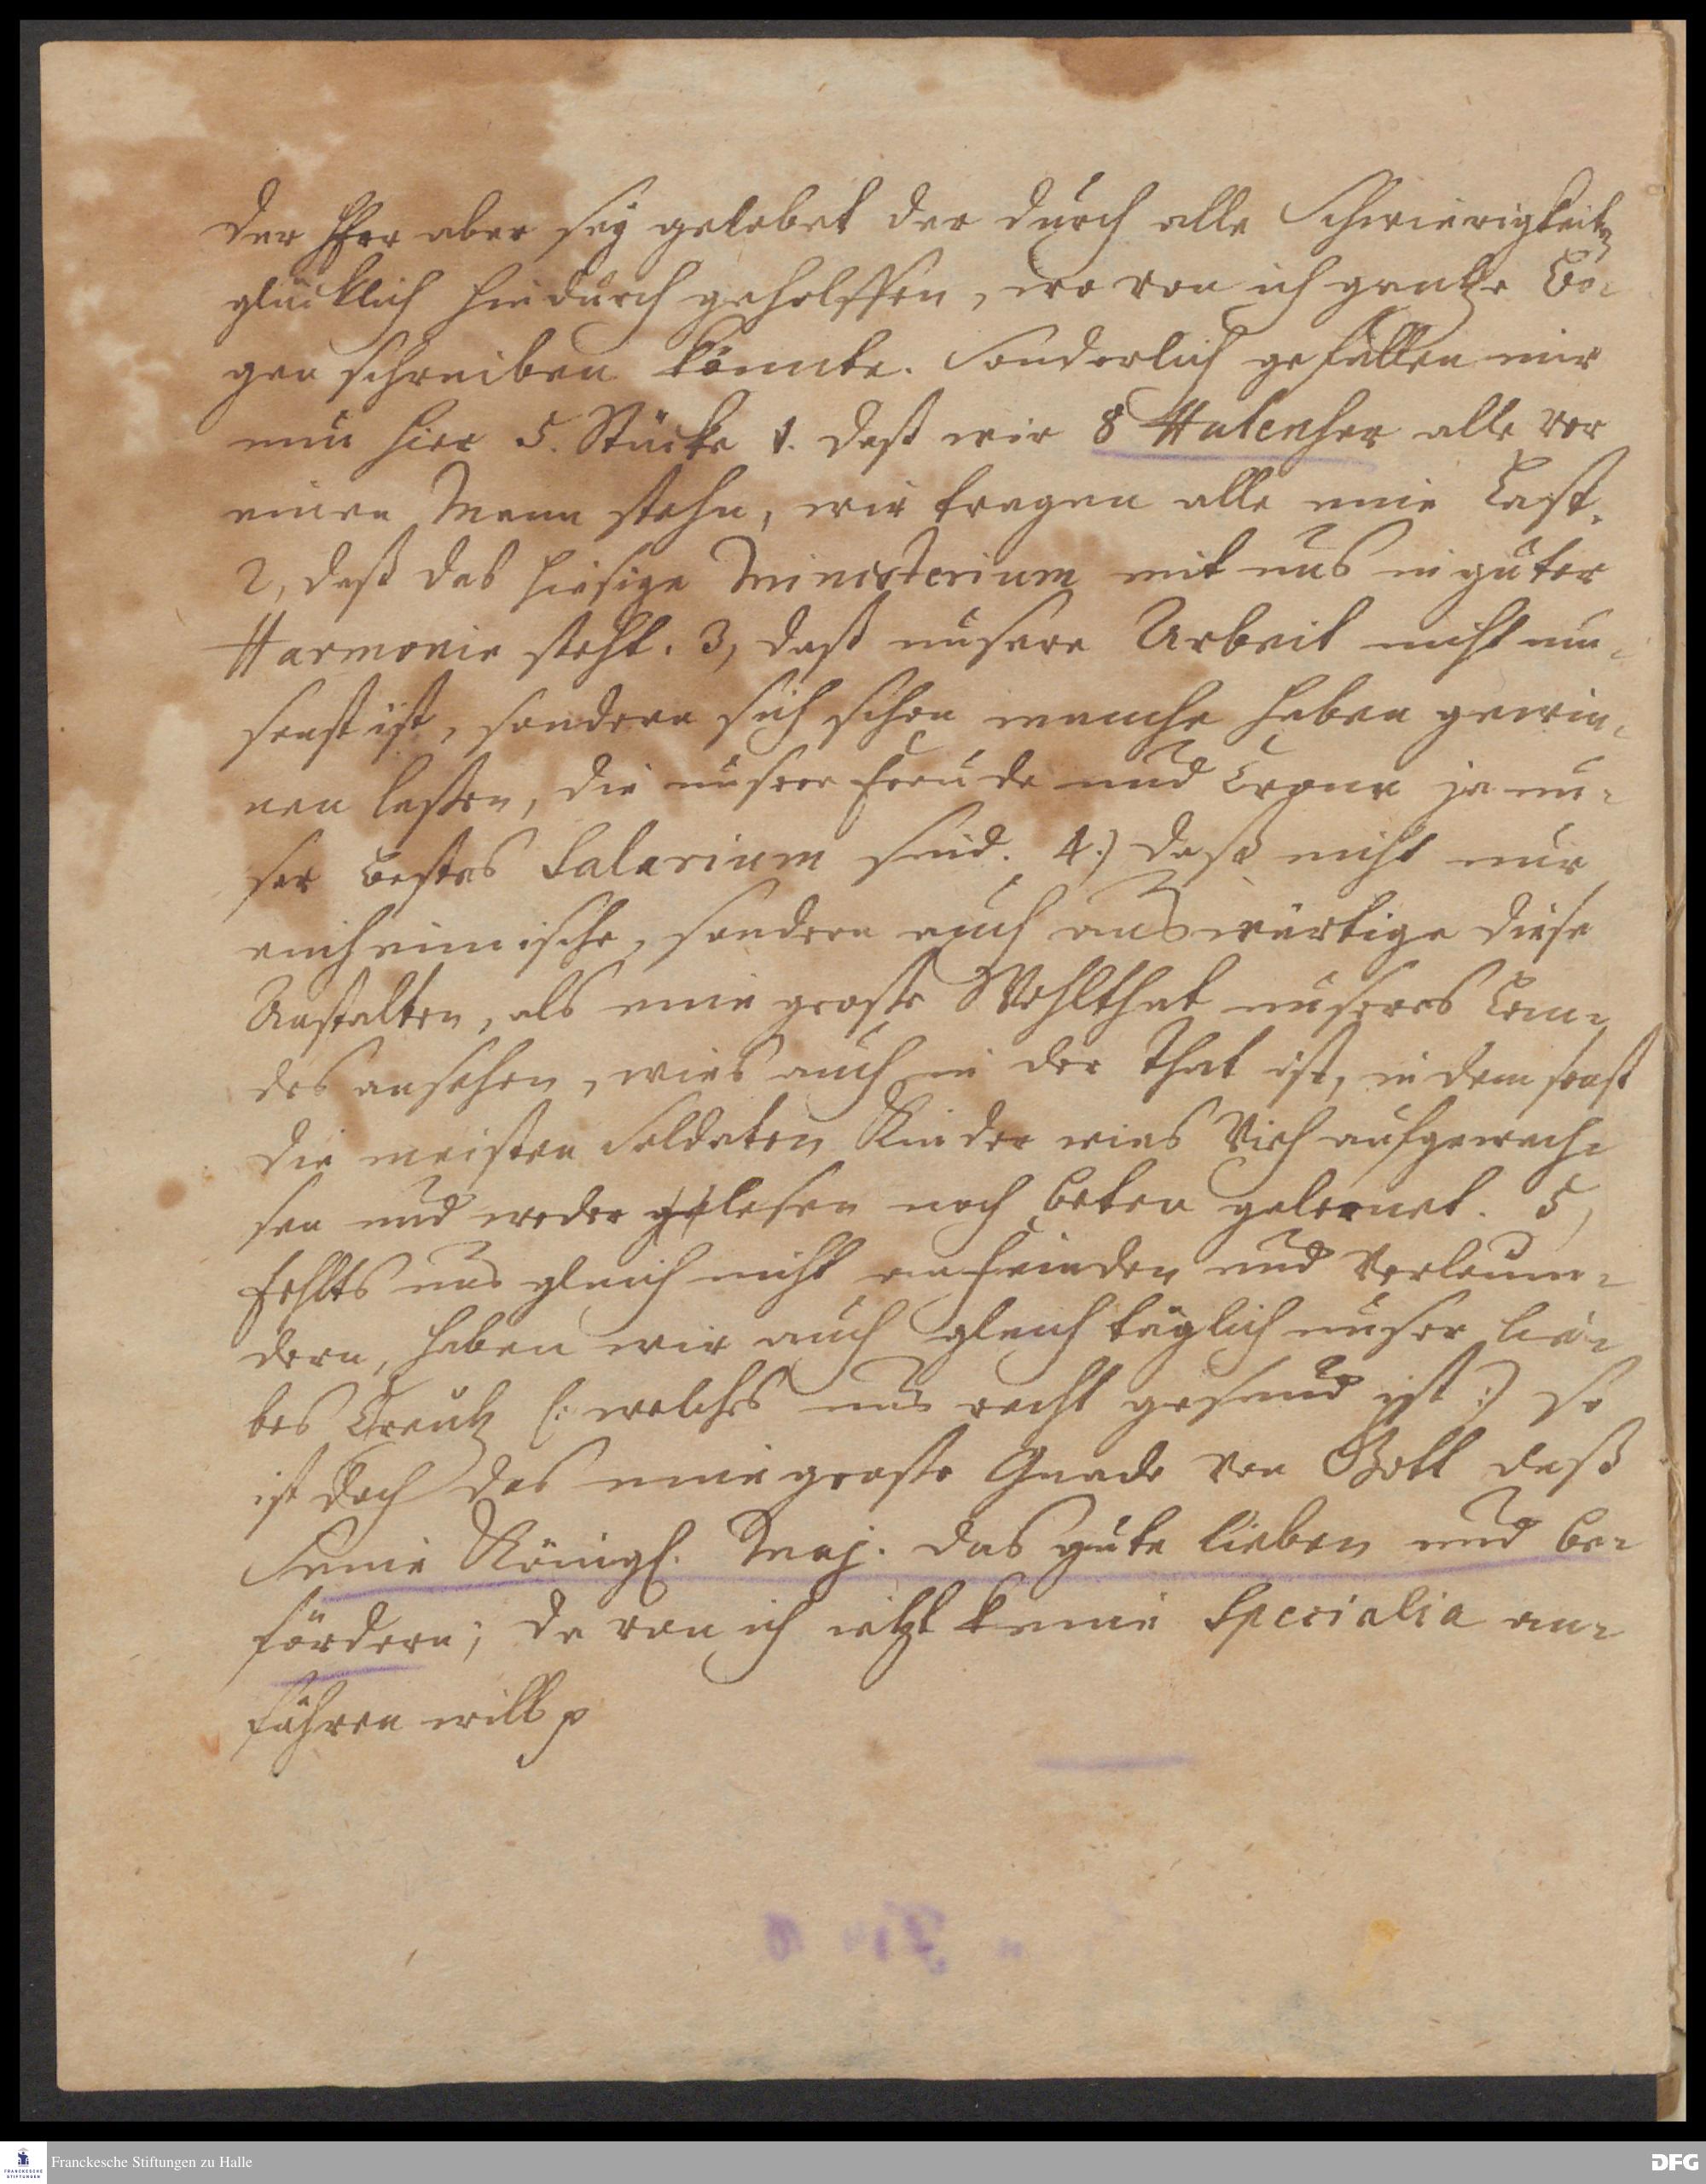 der Herr aber seÿ gelobet der durch alle Schwierigkeiten
glücklich hindurch geholffen, wo von ich gantze Bo-
gen schreiben könnte. Sonderlich gefallen mir
nun hier 5. Stücke 1. daß wir 8 Halenser alle vor
einen Mann stehn, wir tragen alle eine Last.
2, daß das hiesige Ministerium mit uns in guter
Harmonie steht. 3, daß unsere Arbeit nicht um-
sonst ist, sondern sich schon manche haben gewin-
nen laßen, die unsere Freude und Crone ja un-
ser bestes Salarium sind. 4.) daß nicht nur
einheimische, sondern auch auswärtige diese
Anstalten, als eine große Wohlthat unseres Lan-
des ansehen, wies auch in der That ist, in dem sonst
die meisten Soldaten Kinder wies Vieh aufgewach-
sen und weder lesen noch beten gelernet. 5,
fehlts uns gleich nicht an Feinden und Verleum-
dern, haben wir auch gleich täglich unser lie-
bes Creutz (: welches uns recht gesund ist :) so
ist doch das eine große Gnade von Gott daß
Seine Königl. Maj. das gute lieben und be-
fördern; da von ich ietzt keine Specialia an-
führen will p
Franckesche Stiftungen zu Halle
FRANCKESCHE
STIFTUNGEN
DFG